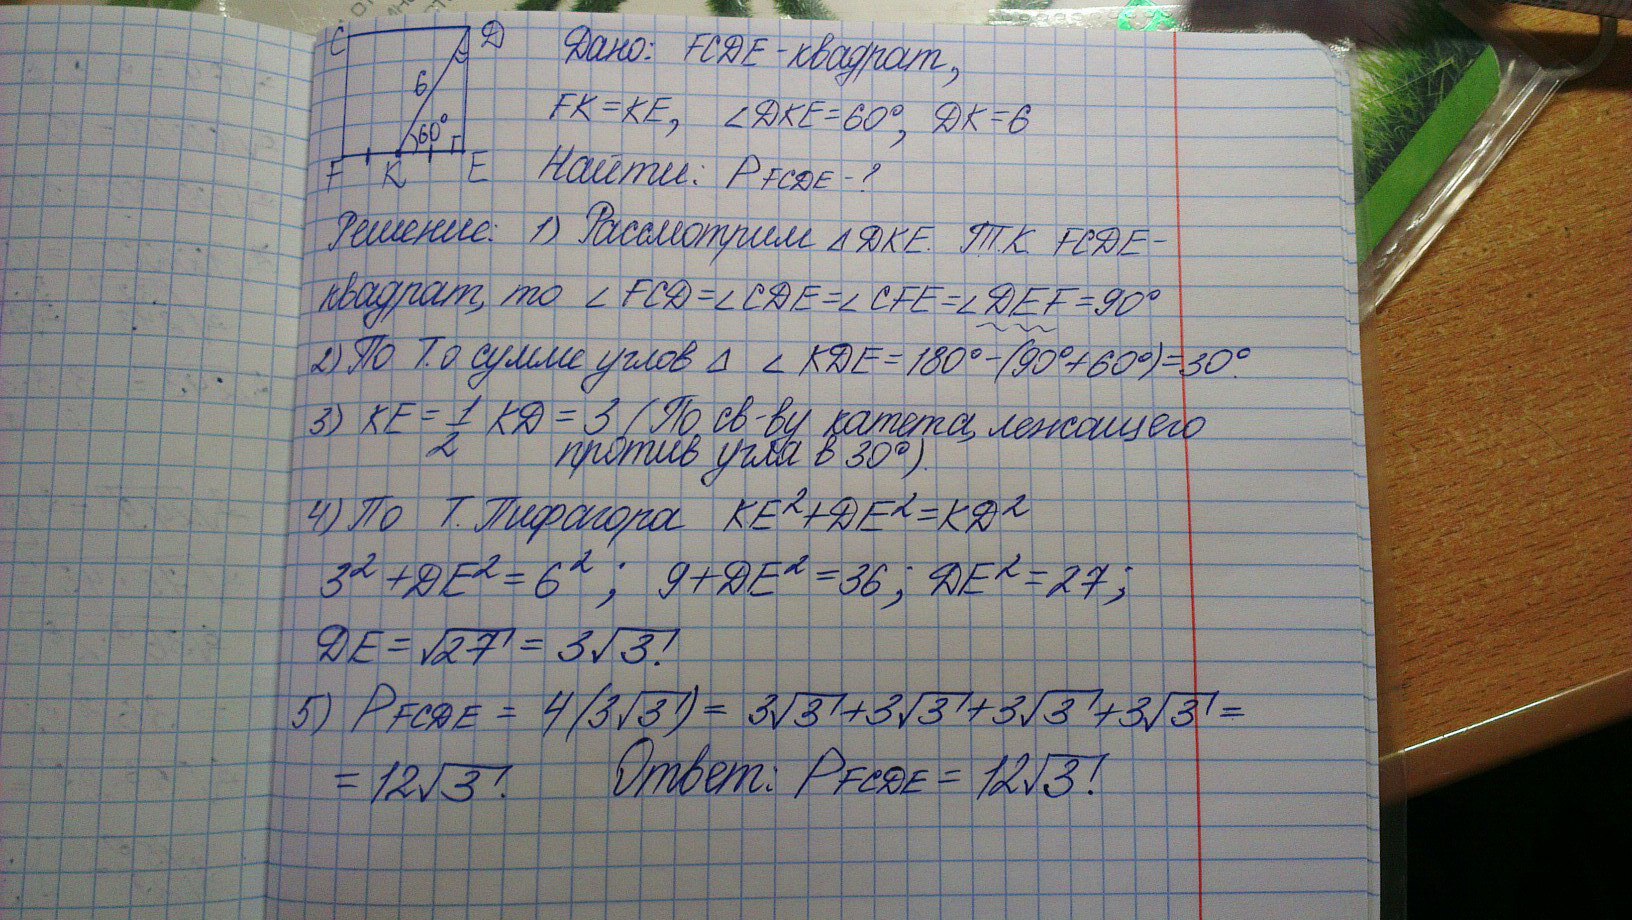 C D
6
60°
F K E
Дано: FCDE - квадрат,
FK = KE, ∠DKE = 60°, DK = 6
Найти: P FCDE - ?
Решение: 1) Рассмотрим △DKE. Т.К. FCDE -
квадрат, то ∠FCD = ∠CDE = ∠CFE = ∠DEF = 90°
2) По Т. о сумме углов △ ∠KDE = 180° - (90° + 60°) = 30°.
3) KE = 1/2 KD = 3 (По св-ву катета, лежащего
против угла в 30°).
4) По Т. Пифагора KE² + DE² = KD²
3² + DE² = 6² ; 9 + DE² = 36 ; DE² = 27 ;
DE = √27 = 3√3.
5) P FCDE = 4(3√3) = 3√3 + 3√3 + 3√3 + 3√3 =
= 12√3. Ответ: P FCDE = 12√3.